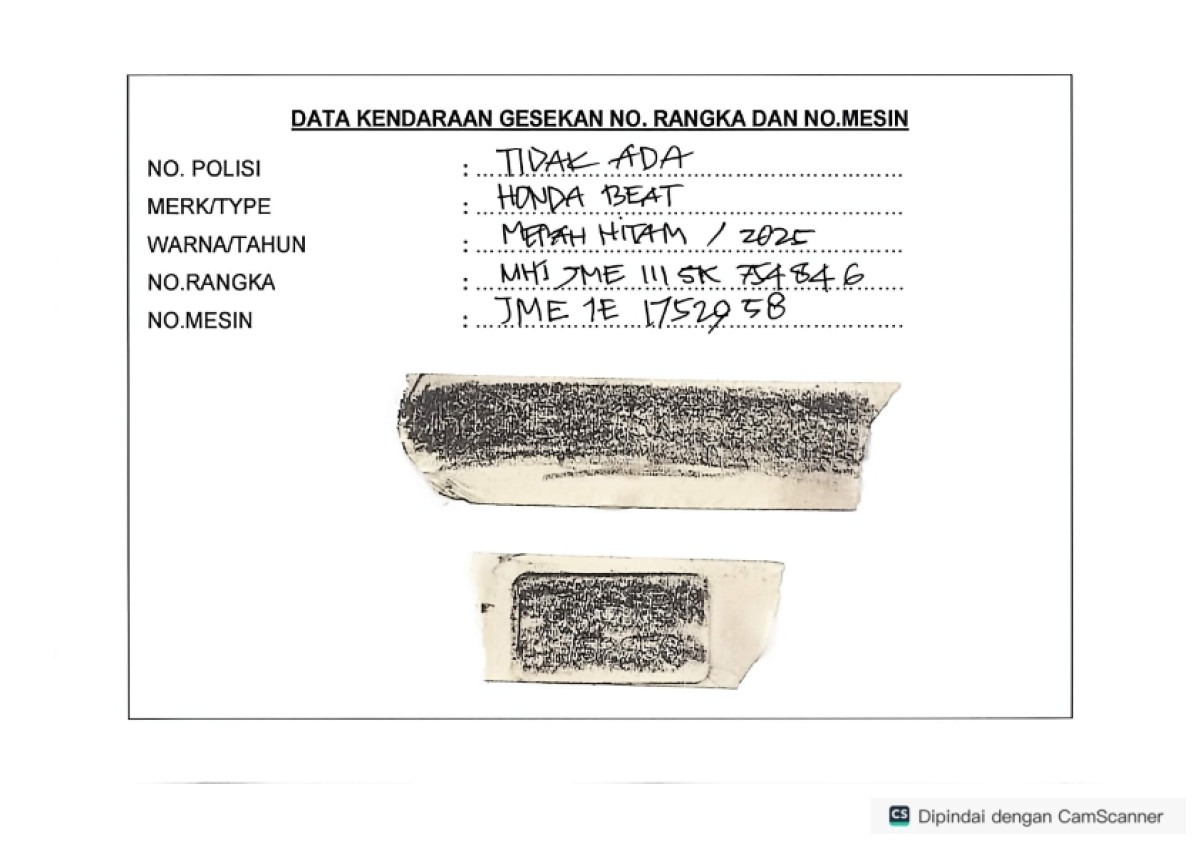 DATA KENDARAAN GESEKAN NO. RANGKA DAN NO.MESIN
NO. POLISI : TIDAK ADA
MERK/TYPE : HONDA BEAT
WARNA/TAHUN : MERAH HITAM / 2025
NO.RANGKA : MH1 JME 111 SK 754846
NO.MESIN : JME 1E 1752958
Dipindai dengan CamScanner